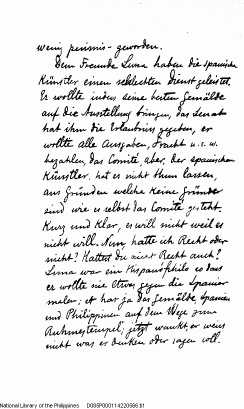 wenig pessimis- geworden.
Dem Freunde Luna haben die spanische
Künstler einen schlechten Dienst geleistet.
Er wollte indes seine besten Gemälde
auf die Ausstellung bringen, das Senat
hat ihm die Erlaubnis gegeben, er
wollte alle Ausgaben, Fracht u.s.w.
bezahlen das Comité, aber, der spanischen
Künstler, hat es nicht thun lassen,
aus Gründen welche keine Gründe
sind wie es selbst das Comité gesteht.
Kurz und klar, es will nicht weil es
nicht will. Nun, hatte ich Recht oder
nicht? Hattest Du nicht Recht auch?
Luna war ein Hispanophilo so dass
er wollte nie etwas gegen die Spanier
malen; er hat ja das Gemälde Spanien
und Philippinen auf dem Wege zum
Ruhmestempel; jetzt wankt er weiss
nicht was er denken oder sagen soll.
National Library of the Philippines